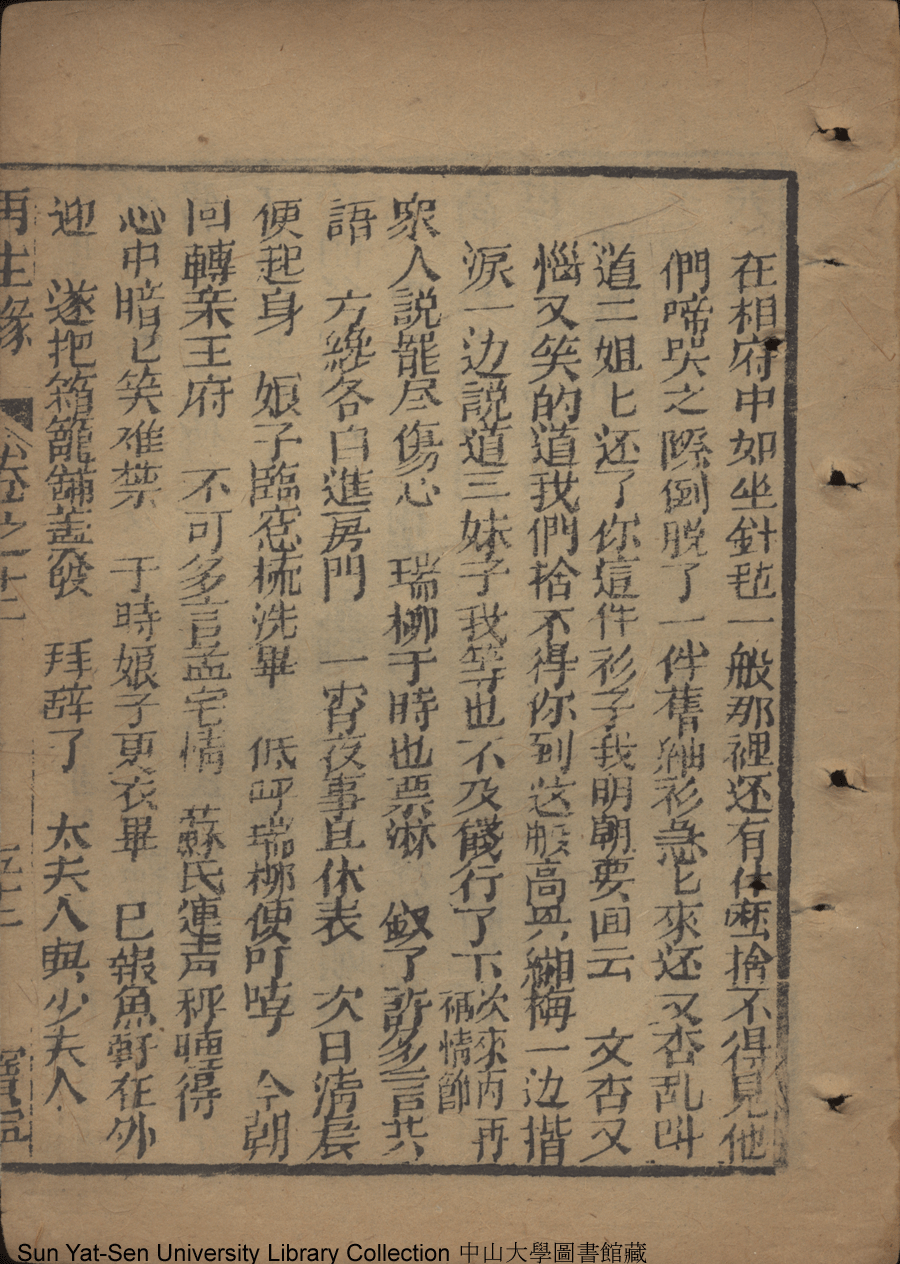 在相府中如坐針毡一般那裡还有什庅捨不得見他
們啼哭之際倒脱了一件舊紬衫急匕來还又杏乱叫
道三姐匕还了你這件衫子我明朝要回云　文杏又
惱又笑的道我們捨不得你到这般高興緗梅一边揩
淚一边説道三妹子我等也不及餞行了下次來再補情節
衆人説罷尽傷心　瑞柳于時也票淋　叙了許多言共
語　方纔各自進房門　一宵夜事且休表　次日清晨
便起身　娘子臨窓梳洗畢　低呼瑞柳使叮嚀　今朝
回轉亲王府　不可多言孟宅情　蘇氏連声称曉得
心中暗匕笑难禁　于時娘子更衣畢　已報魚軒在外
迎　遂把箱籠舖盖發　拜辞了　太夫人與少夫人
再生缘　卷之十二　五十二　寳寧
Sun Yat-Sen University Library Collection 中山大學圖書館藏